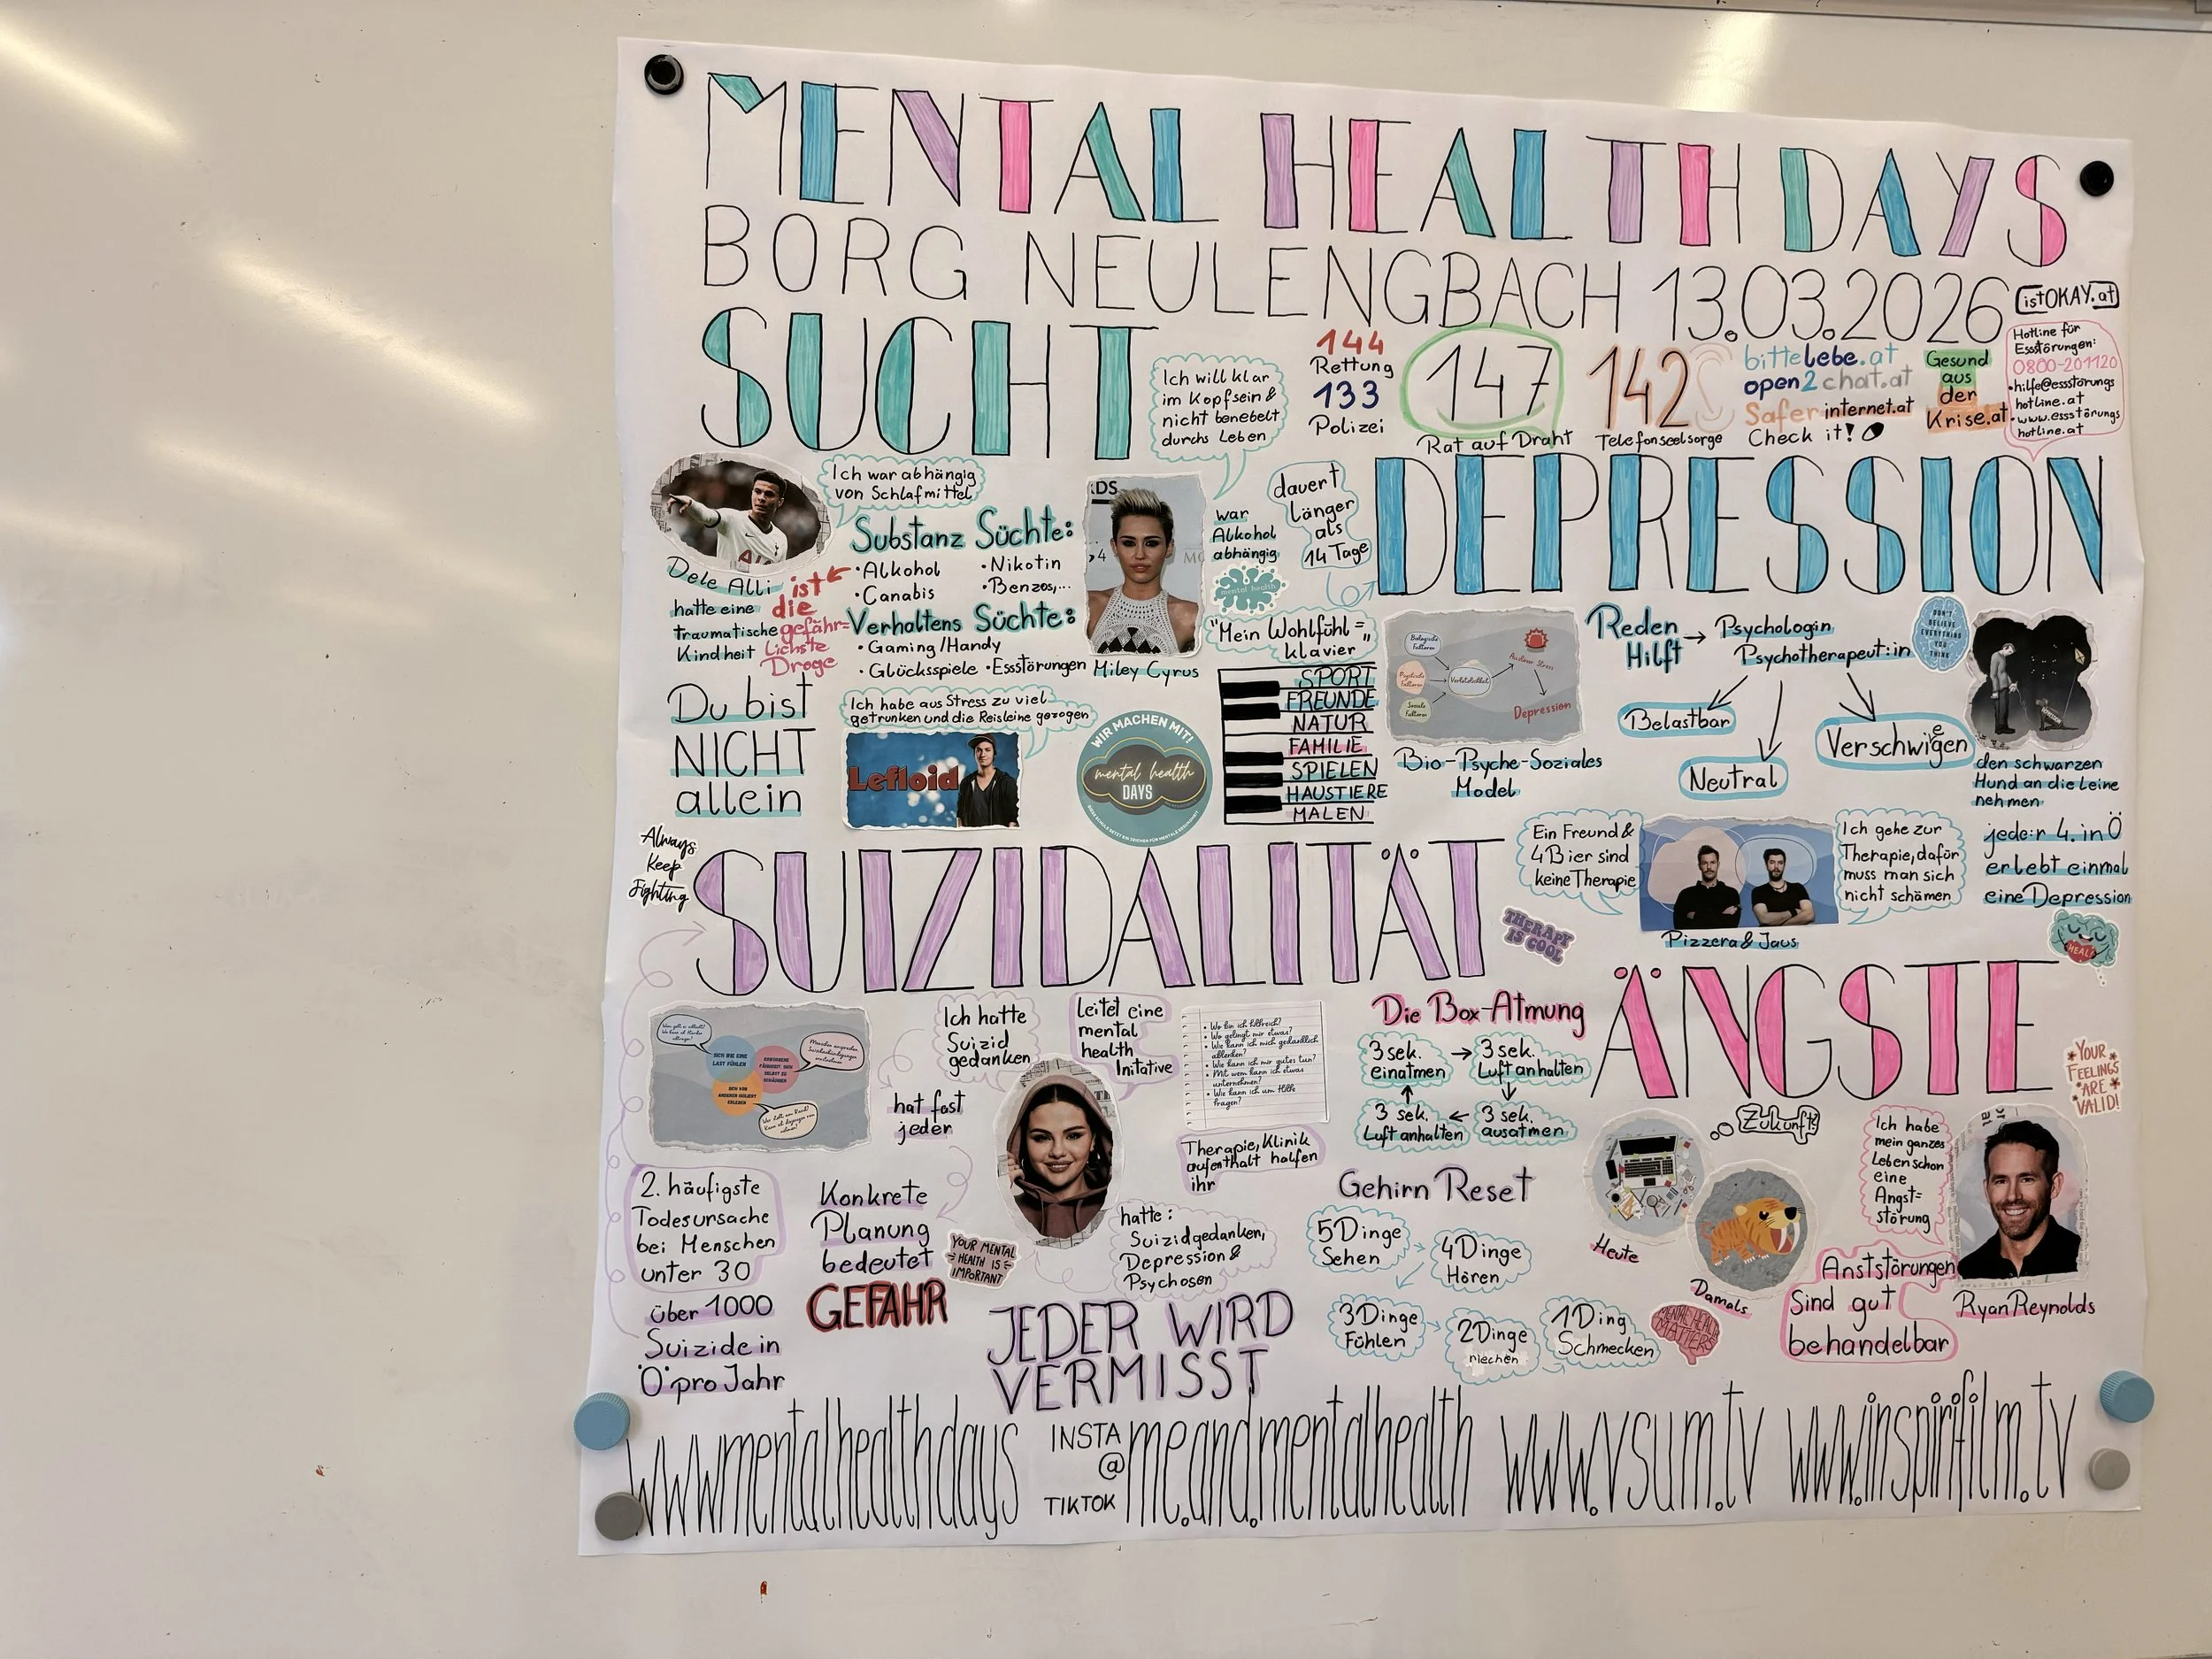 MENTAL HEALTH DAYS
BORG NEULENGBACH 13.03.2026
istOKAY.at
SUCHT
Ich will klar
im Kopf sein &
nicht benebelt
durchs Leben
144
Rettung
133
Polizei
147
Rat auf Draht
142
Telefonseelsorge
bittelebe.at
open2chat.at
Saferinternet.at
Check it!
Gesund
aus
der
Krise.at
Hotline für
Essstörungen:
0800-201120
•hilfe@essstörungs
hotline.at
•www.essstörungs
hotline.at
Ich war abhängig
von Schlafmittel
Dele Alli
hatte eine
traumatische
Kindheit
ist
die
gefähr=
lichste
Droge
Substanz Süchte:
•Alkohol
•Nikotin
•Canabis
•Benzos,...
Verhaltens Süchte:
•Gaming/Handy
•Glücksspiele •Essstörungen
Miley Cyrus
war
Alkohol
abhängig
mental health
dauert
länger
als
14 Tage
DEPRESSION
"Mein Wohlfühl=
klavier"
SPORT
FREUNDE
NATUR
FAMILIE
SPIELEN
HAUSTIERE
MALEN
Biologische
Faktoren
Psychische
Faktoren
Soziale
Faktoren
Verletzlichkeit
Auslöser Stress
Depression
Bio-Psyche-Soziales
Model
Reden
Hilft
Psychologin
Psychotherapeut:in
DON'T
BELIEVE
EVERYTHING
YOU
THINK
Belastbar
Neutral
Verschwiegen
den schwarzen
Hund an die Leine
nehmen
Du bist
NICHT
allein
Ich habe aus Stress zu viel
getrunken und die Reisleine gezogen
Lefloid
WIR MACHEN MIT!
mental health
DAYS
Ein Freund &
4 Bier sind
keine Therapie
Pizzera & Jaus
Ich gehe zur
Therapie, dafür
muss man sich
nicht schämen
jede:r 4. in Ö
erlebt einmal
eine Depression
HEAL
Always
Keep
Fighting
SUIZIDALITÄT
THERAPY
IS COOL
SICH WIE EINE
LAST FÜHLEN
ERWORBENE
FÄHIGKEIT, SICH
SELBST ZU
SCHÄDIGEN
SICH VON
ANDEREN ISOLIERT
ERLEBEN
Ich hatte
Suizid
gedanken
leitet eine
mental
health
Initative
hat fast
jeder
• Wo bin ich hilfreich?
• Wo gelingt mir etwas?
• Wie kann ich mich gedanklich
ablenken?
• Wie kann ich mir gutes tun?
• Mit wem kann ich etwas
unternehmen?
• Wie kann ich um Hilfe
fragen?
Therapie, Klinik
aufenthalt halfen
ihr
hatte:
Suizidgedanken,
Depression &
Psychosen
2. häufigste
Todesursache
bei Menschen
unter 30
über 1000
Suizide in
Ö pro Jahr
Konkrete
Planung
bedeutet
GEFAHR
YOUR MENTAL
HEALTH IS
IMPORTANT
JEDER WIRD
VERMISST
Die Box-Atmung
3 sek.
einatmen
3 sek.
Luft anhalten
3 sek.
Luft anhalten
3 sek.
ausatmen
Gehirn Reset
5 Dinge
Sehen
4 Dinge
Hören
3 Dinge
Fühlen
2 Dinge
riechen
1 Ding
Schmecken
MENTAL HEALTH
MATTERS
ÄNGSTE
YOUR
FEELINGS
ARE
VALID!
Zukunft?
Heute
Damals
Ich habe
mein ganzes
Leben schon
eine
Angst=
störung
Anststörungen
Sind gut
behandelbar
Ryan Reynolds
www.mentalhealthdays
INSTA
@
TIKTOK
me.and.mentalhealth
www.vsum.tv
www.inspirifilm.tv